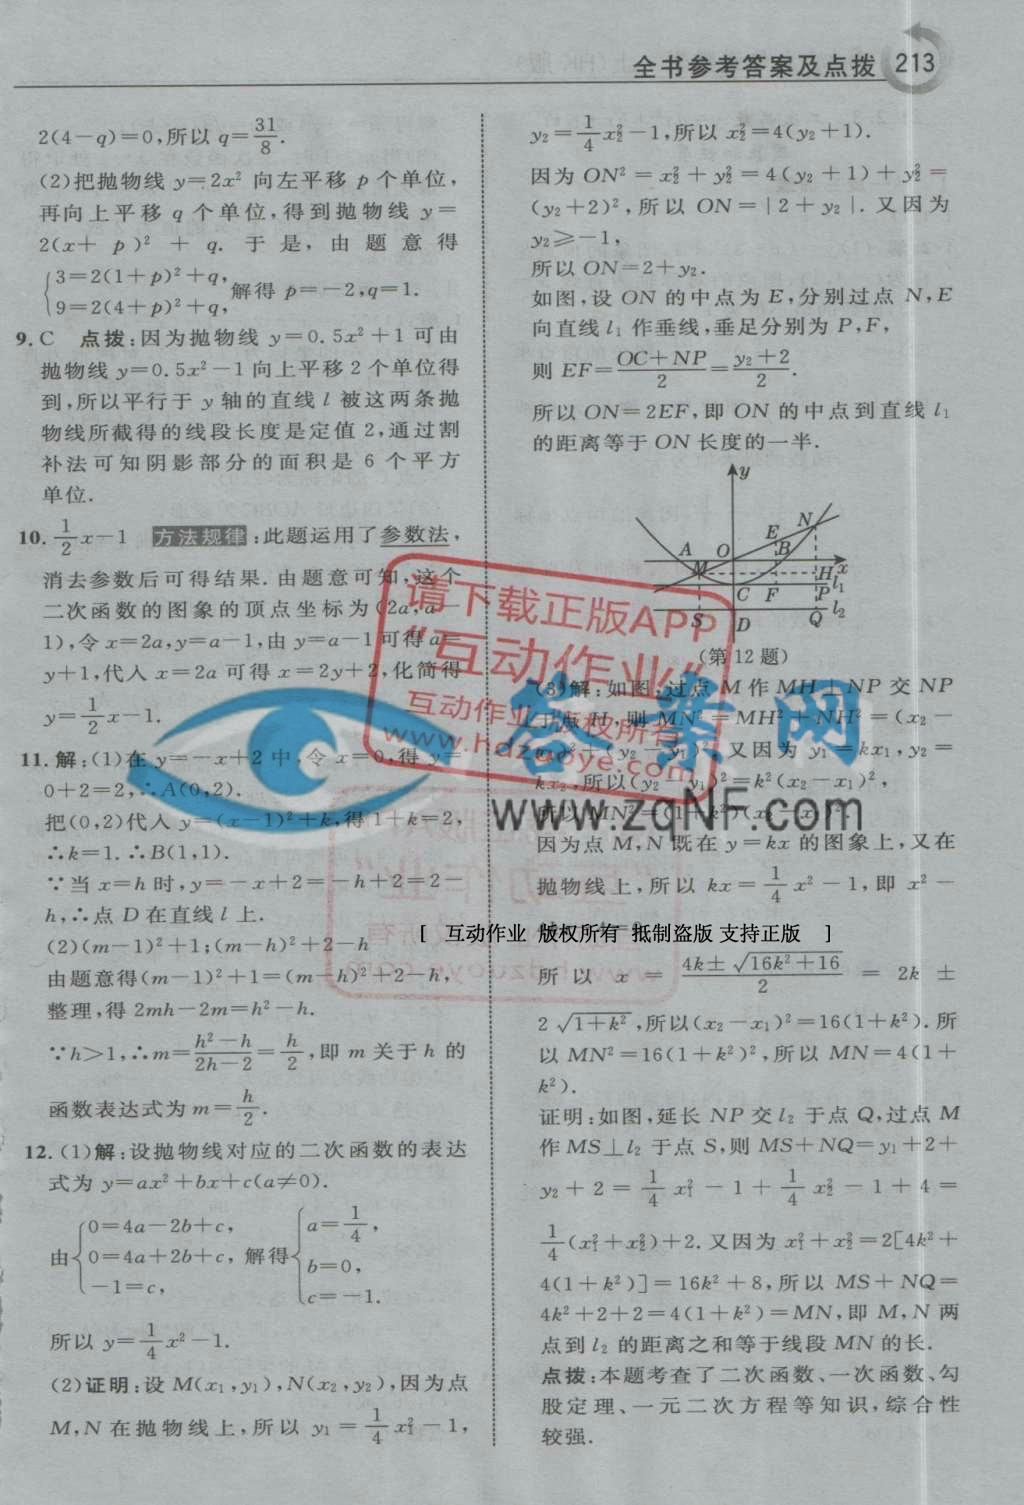 全书参考答案及点拨 213
2(4－q)＝0,所以 q＝31/8.
(2)把抛物线 y＝2x² 向左平移 p 个单位,
再向上平移 q 个单位,得到抛物线 y＝
2(x＋p)²＋q. 于是,由题意得
{3＝2(1＋p)²＋q,
9＝2(4＋p)²＋q, 解得 p＝－2,q＝1.
9. C 点拨:因为抛物线 y＝0.5x²＋1 可由
抛物线 y＝0.5x²－1 向上平移 2 个单位得
到,所以平行于 y 轴的直线 l 被这两条抛
物线所截得的线段长度是定值 2,通过割
补法可知阴影部分的面积是 6 个平方
单位.
10. 1/2x－1 方法规律:此题运用了参数法,
消去参数后可得结果. 由题意可知,这个
二次函数的图象的顶点坐标为(2a,a－
1),令 x＝2a,y＝a－1,由 y＝a－1 可得 a＝
y＋1,代入 x＝2a 可得 x＝2y＋2,化简得
y＝1/2x－1.
11. 解:(1)在 y＝－x＋2 中,令 x＝0,得 y＝
0＋2＝2,∴A(0,2).
把(0,2)代入 y＝(x－1)²＋k,得 1＋k＝2,
∴k＝1.∴B(1,1).
∵当 x＝h 时,y＝－x＋2＝－h＋2＝2－
h,∴点 D 在直线 l 上.
(2)(m－1)²＋1;(m－h)²＋2－h
由题意得(m－1)²＋1＝(m－h)²＋2－h,
整理,得 2mh－2m＝h²－h.
∵h＞1,∴m＝h²－h/2h－2＝h/2,即 m 关于 h 的
函数表达式为 m＝h/2.
12. (1)解:设抛物线对应的二次函数的表达
式为 y＝ax²＋bx＋c(a≠0).
由{0＝4a－2b＋c,
0＝4a＋2b＋c,
－1＝c, 解得{a＝1/4,
b＝0,
c＝－1.
所以 y＝1/4x²－1.
(2)证明:设 M(x₁,y₁),N(x₂,y₂),因为点
M,N 在抛物线上,所以 y₁＝1/4x₁²－1,
y₂＝1/4x₂²－1,所以 x₂²＝4(y₂＋1).
因为 ON²＝x₂²＋y₂²＝4(y₂＋1)＋y₂²＝
(y₂＋2)²,所以 ON＝|2＋y₂|. 又因为
y₂≥－1,
所以 ON＝2＋y₂.
如图,设 ON 的中点为 E,分别过点 N,E
向直线 l₁ 作垂线,垂足分别为 P,F,
则 EF＝OC＋NP/2＝y₂＋2/2.
所以 ON＝2EF,即 ON 的中点到直线 l₁
的距离等于 ON 长度的一半.
y
N
E
A O B
M H x
C F P l₁
S D Q l₂
(第 12 题)
(3)解:如图,过点 M 作 MH⊥NP 交 NP
于点 H,则 MN²＝MH²＋NH²＝(x₂－
x₁)²＋(y₂－y₁)². 又因为 y₁＝kx₁,y₂＝
kx₂,所以(y₂－y₁)²＝k²(x₂－x₁)²,
所以 MN²＝(1＋k²)(x₂－x₁)².
因为点 M,N 既在 y＝kx 的图象上,又在
抛物线上,所以 kx＝1/4x²－1,即 x²－
所以 x＝4k±√16k²＋16/2＝2k±
2√1＋k²,所以(x₂－x₁)²＝16(1＋k²).所
以 MN²＝16(1＋k²)²,所以 MN＝4(1＋
k²).
证明:如图,延长 NP 交 l₂ 于点 Q,过点 M
作 MS⊥l₂ 于点 S,则 MS＋NQ＝y₁＋2＋
y₂＋2＝1/4x₁²－1＋1/4x₂²－1＋4＝
1/4(x₁²＋x₂²)＋2. 又因为 x₁²＋x₂²＝2[4k²＋
4(1＋k²)]＝16k²＋8,所以 MS＋NQ＝
4k²＋2＋2＝4(1＋k²)＝MN,即 M,N 两
点到 l₂ 的距离之和等于线段 MN 的长.
点拨:本题考查了二次函数、一次函数、勾
股定理、一元二次方程等知识,综合性
较强.
请下载正版APP
“互动作业”
互动作业 版权所有
www.hdzuoye.com
答案网
www.zqNF.com
[ 互动作业 版权所有 抵制盗版 支持正版 ]